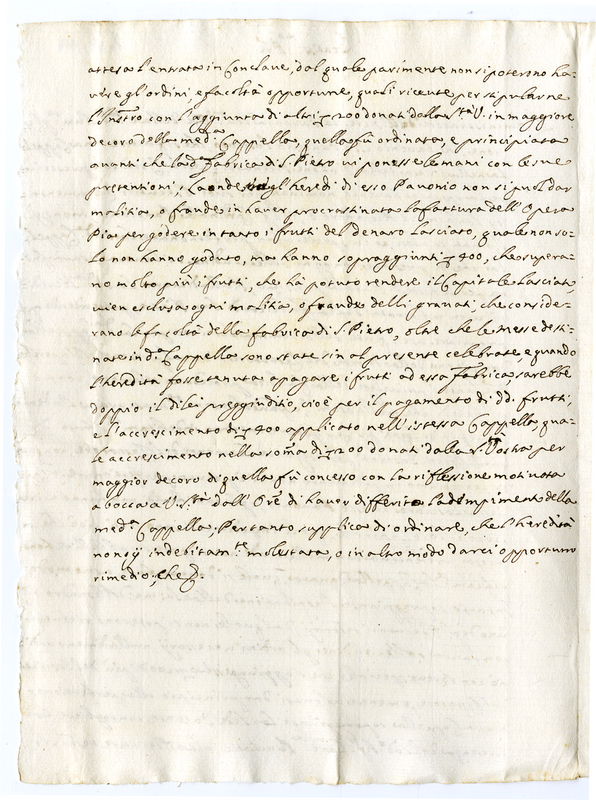 attesa l'entrata in Conclave, dal quale parimente non si poterono ha-
vere gl'ordini, e facoltà opportune, quali ricevute per stipularne
l'Instro con l'aggiunta di altri 200 donati dalla Stà V. in maggiore
decoro della medma Cappella, quella fù ordinata, e principiata
avanti che la Fabrica di S. Pietro vi ponesse le mani con le sue
pretentioni, Laonde gl'heredi di esso Pavonio non si puol dar
malitia, o fraude in haver procrastinata la fattura dell'Opera
Pia per godere in tanto i frutti del denaro lasciato, quale non so-
lo non hanno goduto, ma hanno sopraggiunti 400, che supera-
no molto più i frutti, che hà potuto rendere il Capitale lasciato
vien esclusa ogni malitia, o fraude delli gravati, che conside-
rano le facoltà della fabrica di S. Pietro, oltre che le messe desti-
nate in da Cappella sono state sin al presente celebrate, e quando
l'heredità fosse tenuta a pagare i frutti ad essa Fabrica, sarebbe
doppio il di lei preggiuditio, cioè per il pagamento di dd. frutti,
e l'accrescimento di 400 applicato nell'istessa Cappella, qua-
le accrescimento nella soma di 200 donati dalla S. Vostra per
maggior decoro di quella fù concesso con la riflessione motivata
a bocca a V. Stà dall'Ore di haver differito l'adempimento della
meda Cappella, Per tanto supplica di ordinare, che l'heredità
non indebitamte molestata, o in altro modo darci opportuno
rimedio, che